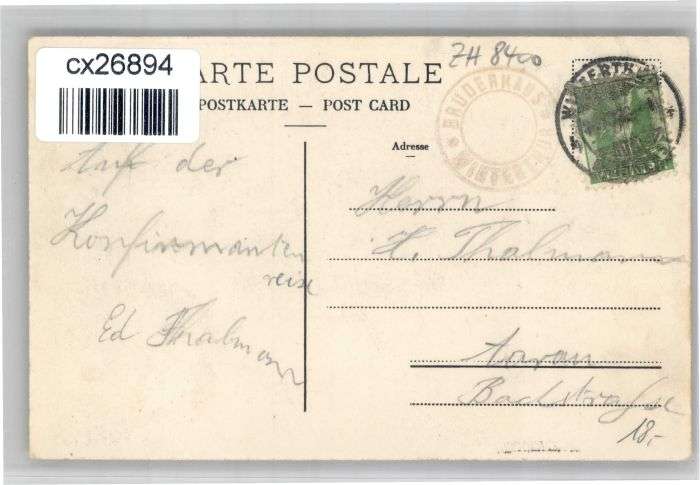 cx26894
ARTE POSTALE
POSTKARTE — POST CARD
ZH 8400
BRUDERHAUS
WINTERT
Adresse
Auf der
Konfirmanten
reise
Ed Thalmann
Herrn
H. Thalmann
Aarau
Bachstrasse
18.-